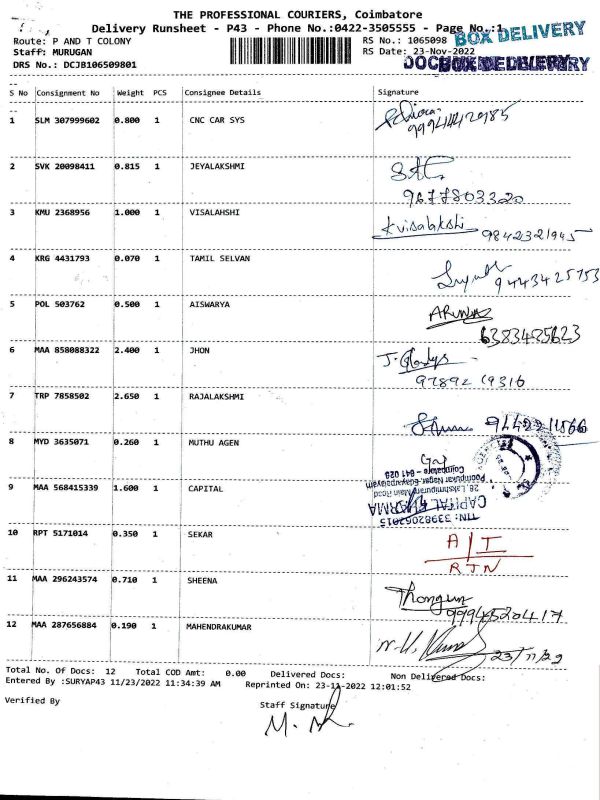 THE PROFESSIONAL COURIERS, Coimbatore
Delivery Runsheet - P43 - Phone No.:0422-3505555 - Page No.:1
BOX DELIVERY
Route: P AND T COLONY RS No.: 1065098
Staff: MURUGAN RS Date: 23-Nov-2022
DRS No.: DCJB106509801
BOX DELIVERY
S No Consignment No Weight PCS Consignee Details Signature
1 SLM 307999602 0.800 1 CNC CAR SYS
2 SVK 20098411 0.815 1 JEYALAKSHMI
9677803320
3 KMU 2368956 1.000 1 VISALAHSHI K visalakshi 9842321945
4 KRG 4431793 0.070 1 TAMIL SELVAN
9443425753
5 POL 503762 0.500 1 AISWARYA
6383425623
6 MAA 858088322 2.400 1 JHON J. Gladys
9789219316
7 TRP 7858502 2.650 1 RAJALAKSHMI
9442211566
8 MYD 3635071 0.260 1 MUTHU AGEN
9 MAA 568415339 1.600 1 CAPITAL
CAPITAL PHARMA
28, Lakshmipuram Main Road
Poompukar Nagar, Edayarpalayam
Coimbatore - 641 025
TIN: 33982062015
10 RPT 5171014 0.350 1 SEKAR A/I
RTN
11 MAA 296243574 0.710 1 SHEENA
9994520417
12 MAA 287656884 0.190 1 MAHENDRAKUMAR
23/11/22
Total No. Of Docs: 12 Total COD Amt: 0.00 Delivered Docs: Non Delivered Docs:
Entered By :SURYAP43 11/23/2022 11:34:39 AM Reprinted On: 23-11-2022 12:01:52
Verified By Staff Signature